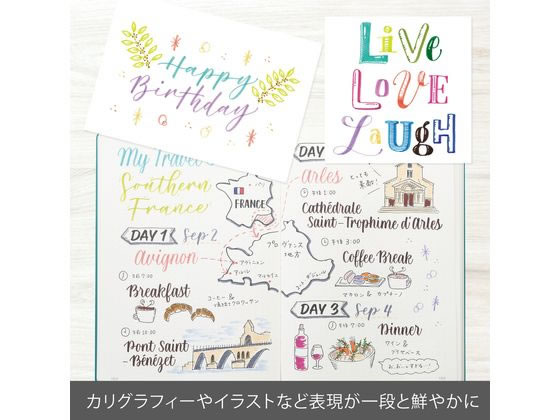 Happy
Birthday
Live
LOVE
Laugh
My Travel
Southern
France
FRANCE
DAY 1 Sep 2
Avignon
7:00
Breakfast
コーヒー&
Pont Saint
-Bénézet
プロヴァンス
地方
アヴィニョン
アルル
マルセイユ
DAY
Arles
とっても
素敵!
Cathédrale
Saint-Trophime d'Arles
午後 3:00
Coffee Break
マカロン & カプチーノ
DAY 3 Sep 4
Dinner
ワイン &
ブイヤベース
カリグラフィーやイラストなど表現が一段と鮮やかに